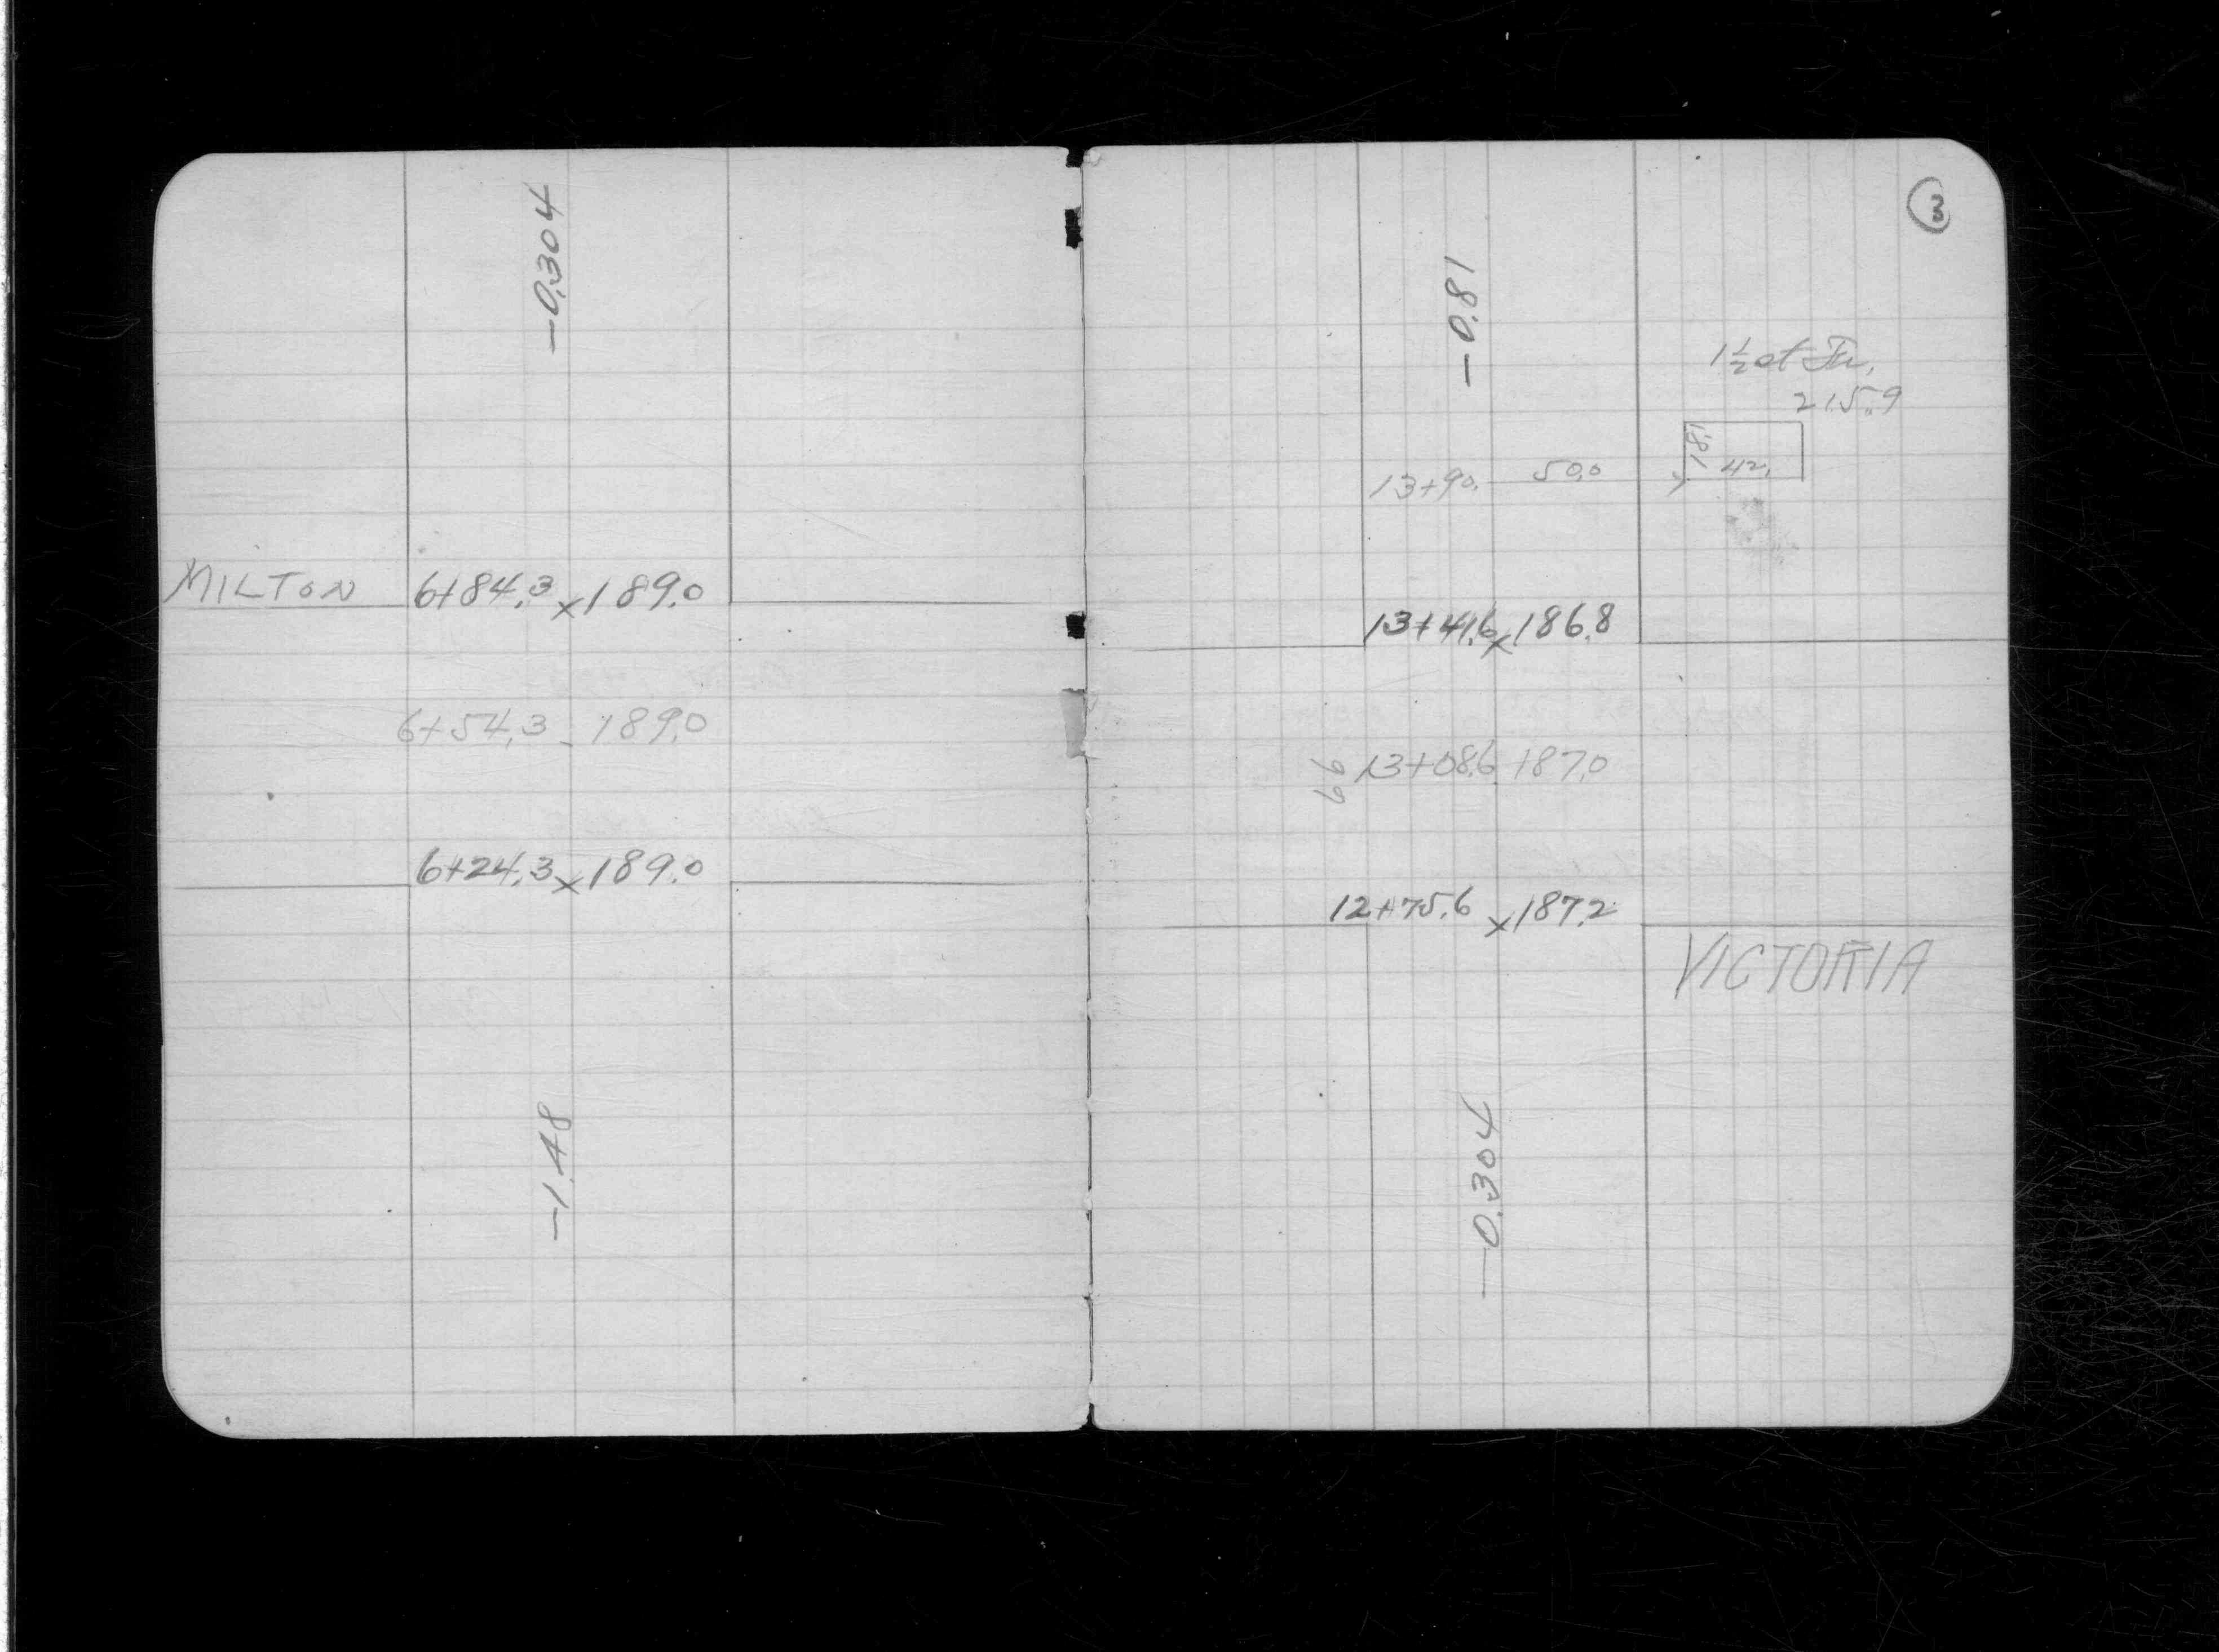 -0.304
MILTON 6+84.3 x 189.0
6+54.3 - 189.0
6+24.3 x 189.0
-1.48
3
-0.81
1½ st Fr.
215.9
18.1
42.
13+90. 50.0
13+41.6 x 186.8
66 13+08.6 187.0
12+75.6 x 187.2
VICTORIA
-0.304